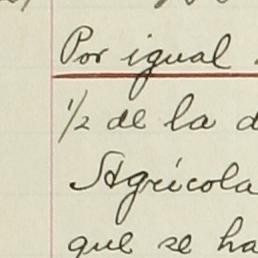 Por igual
½ de la
Agrícola
que se ha